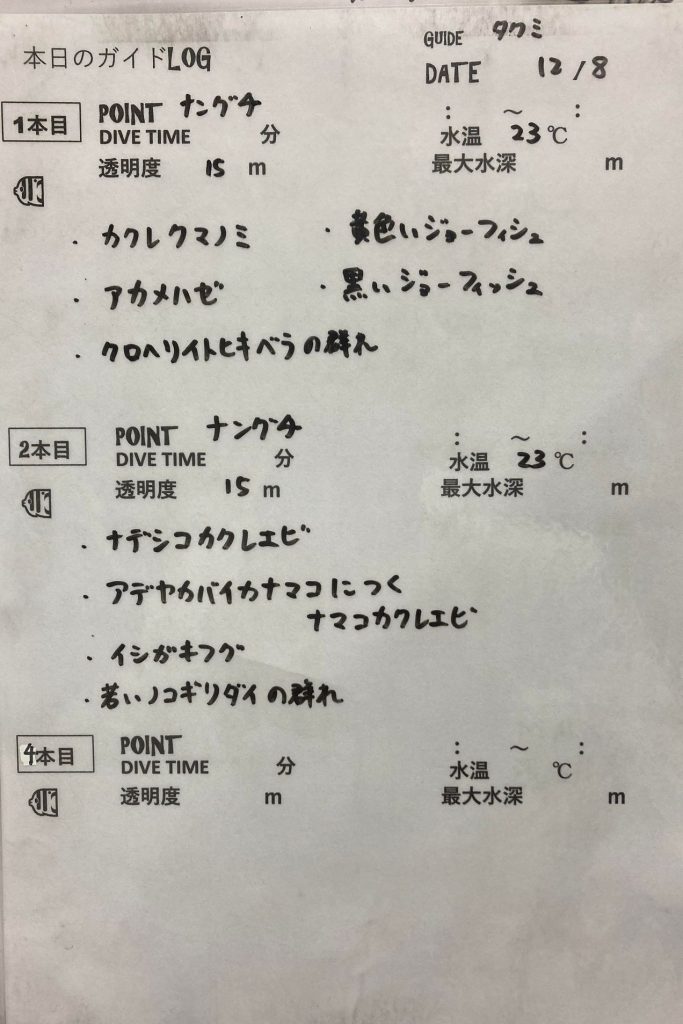 本日のガイドLOG
GUIDE タクミ
DATE 12/8
1本目
POINT ナングチ
: ～ :
DIVE TIME 分
水温 23℃
透明度 15 m
最大水深 m
・カクレクマノミ ・黄色いジョーフィシュ
・アカメハゼ ・黒いジョーフィッシュ
・クロヘリイトヒキベラの群れ
2本目
POINT ナングチ
: ～ :
DIVE TIME 分
水温 23℃
透明度 15 m
最大水深 m
・ナデシコカクレエビ
・アデヤカバイカナマコにつく
ナマコカクレエビ
・イシガキフグ
・若いノコギリダイの群れ
4本目
POINT
: ～ :
DIVE TIME 分
水温 ℃
透明度 m
最大水深 m